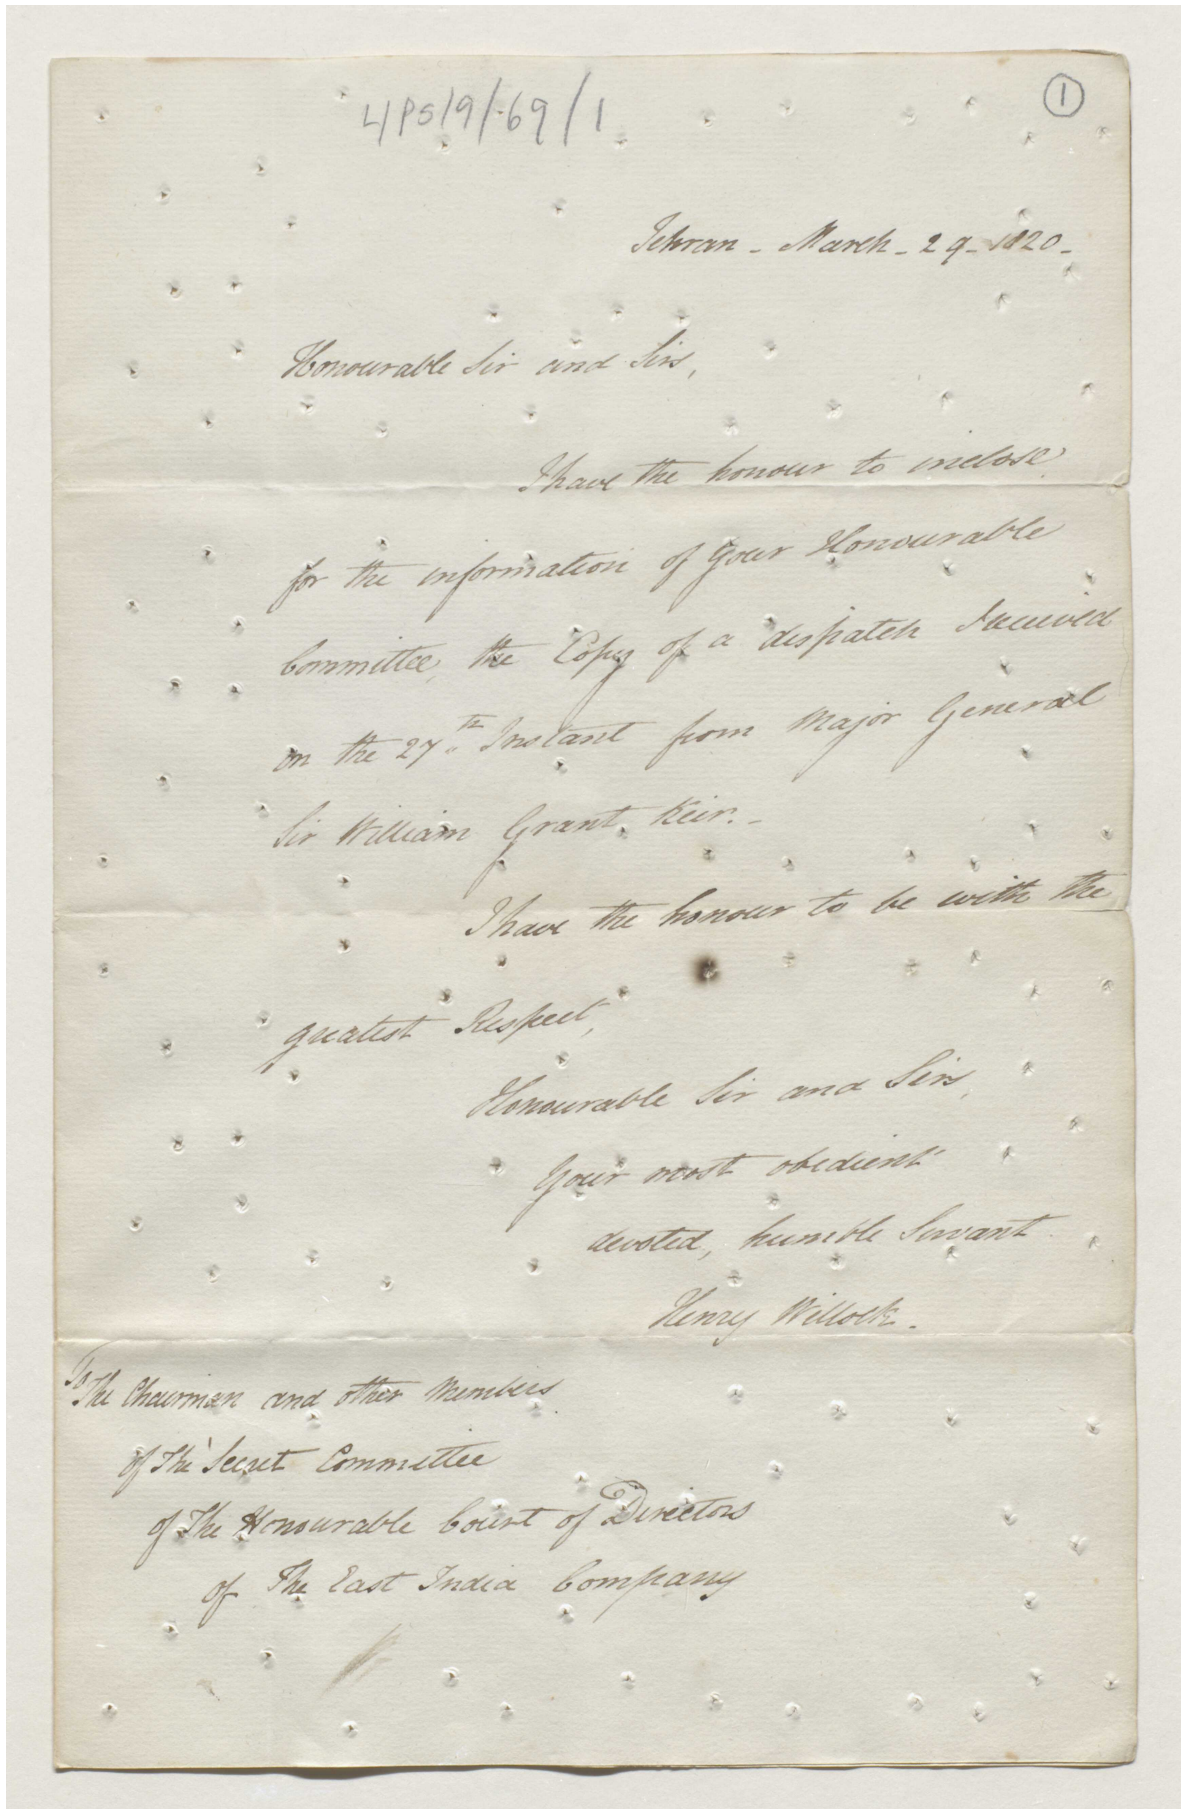 L/PS/9/69/1
1
Tehran - March - 29 - 1820 -
Honourable Sir and Sirs,
I have the honour to inclose
for the information of Your Honourable
Committee, the Copy of a dispatch received
on the 27th Instant from Major General
Sir William Grant Keir. -
I have the honour to be with the
greatest Respect,
Honourable Sir and Sirs,
Your most obedient
devoted, humble Servant
Henry Willock -
To
The Chairman and other Members
of The Secret Committee
of The Honourable Court of Directors
of The East India Company